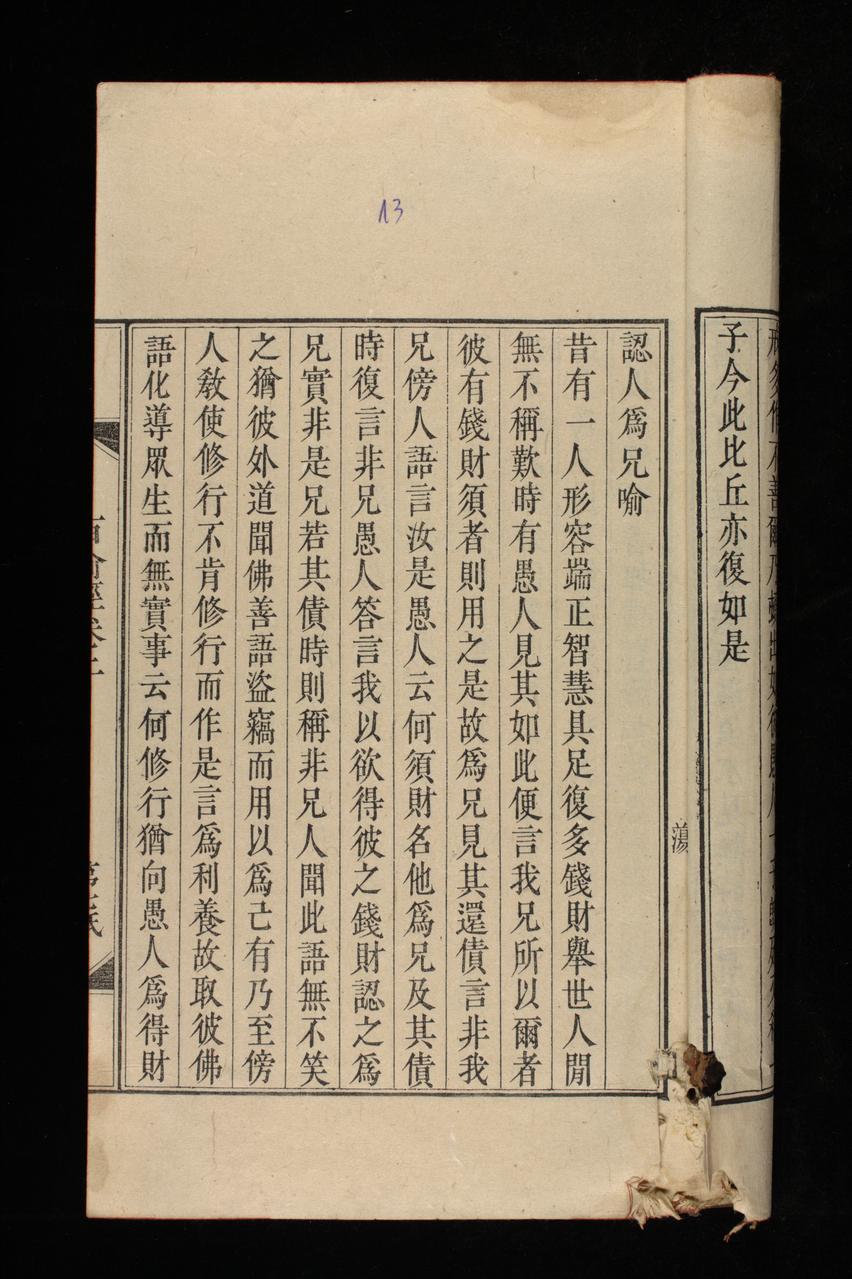 子今此比丘亦復如是
蕩
13
認人爲兄喻
昔有一人形容端正智慧具足復多錢財舉世人閒
無不稱歎時有愚人見其如此便言我兄所以爾者
彼有錢財須者則用之是故爲兄見其還債言非我
兄傍人語言汝是愚人云何須財名他爲兄及其債
時復言非兄愚人答言我以欲得彼之錢財認之爲
兄實非是兄若其債時則稱非兄人聞此語無不笑
之猶彼外道聞佛善語盜竊而用以爲己有乃至傍
人敎使修行不肯修行而作是言爲利養故取彼佛
語化導眾生而無實事云何修行猶向愚人爲得財